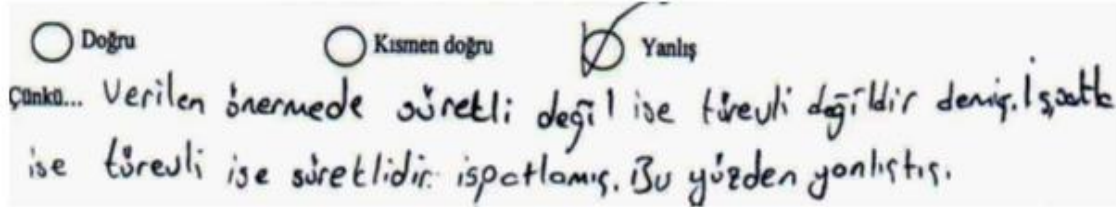 Doğru Kısmen doğru Yanlış
Çünkü... Verilen önermede sürekli değil ise türevli değildir demiş. İspatta
ise türevli ise süreklidir ispatlamış. Bu yüzden yanlıştır.